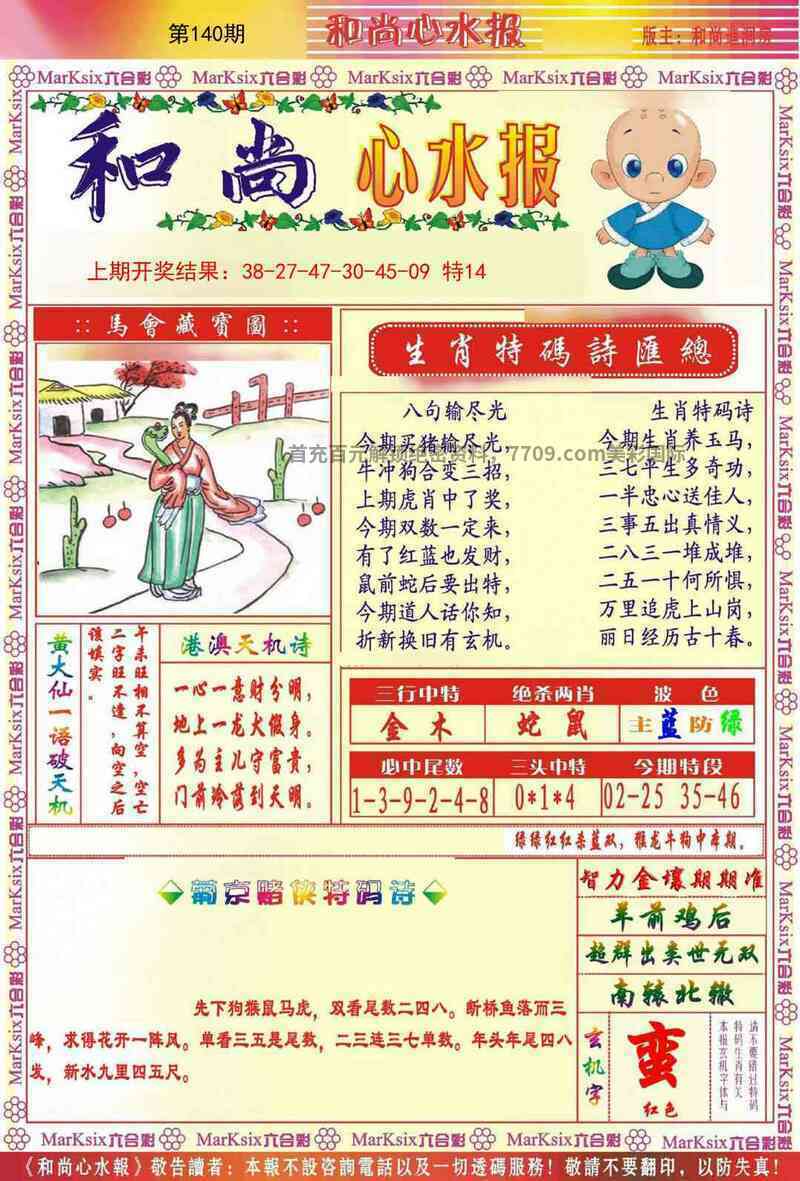 第140期
和尚心水报
版主：和尚进洞房
MarKsix六合彩 MarKsix六合彩 MarKsix六合彩 MarKsix六合彩 MarKsix六合彩
和尚心水报
上期开奖结果：38-27-47-30-45-09 特14
::馬會藏寶圖::
生肖特碼詩匯總
八句输尽光
今期买猪输尽光，
牛冲狗合变三招，
上期虎肖中了奖，
今期双数一定来，
有了红蓝也发财，
鼠前蛇后要出特，
今期道人话你知，
折新换旧有玄机。
生肖特码诗
今期生肖养玉马，
三七平生多奇功，
一半忠心送佳人，
三事五出真情义，
二八三一堆成堆，
二五一十何所惧，
万里追虎上山岗，
丽日经历古十春。
首充百元解锁绝密资料，7709.com美彩国际
黄大仙一语破天机
午未旺相不算空，空亡
二字旺不遭，向空之后
该填实。
港澳天机诗
一心一意财分明，
地上一龙大假身。
多为主儿守富贵，
门前冷落到天明。
三行中特
金木
绝杀两肖
蛇鼠
波色
主蓝防绿
必中尾数
1-3-9-2-4-8
三头中特
0*1*4
今期特段
02-25 35-46
绿绿红红杀蓝双，猴龙斗狗中本期。
葡京赌侠特码诗
先下狗猴鼠马虎，双看尾数二四八。断桥鱼落而三
峰，求得花开一阵凤。单看三五是尾数，二三连三七单数。年头年尾四八
发，新水九里四五尺。
智力金壤期期准
羊前鸡后
超群出类世无双
南辕北辙
玄机字
蛮
红色
请不要错过特码
特码生肖有关
本报玄机字体与
MarKsix六合彩 MarKsix六合彩 MarKsix六合彩 MarKsix六合彩 MarKsix六合彩
《和尚心水報》敬告讀者：本報不設咨詢電話以及一切透碼服務！敬請不要翻印，以防失真！